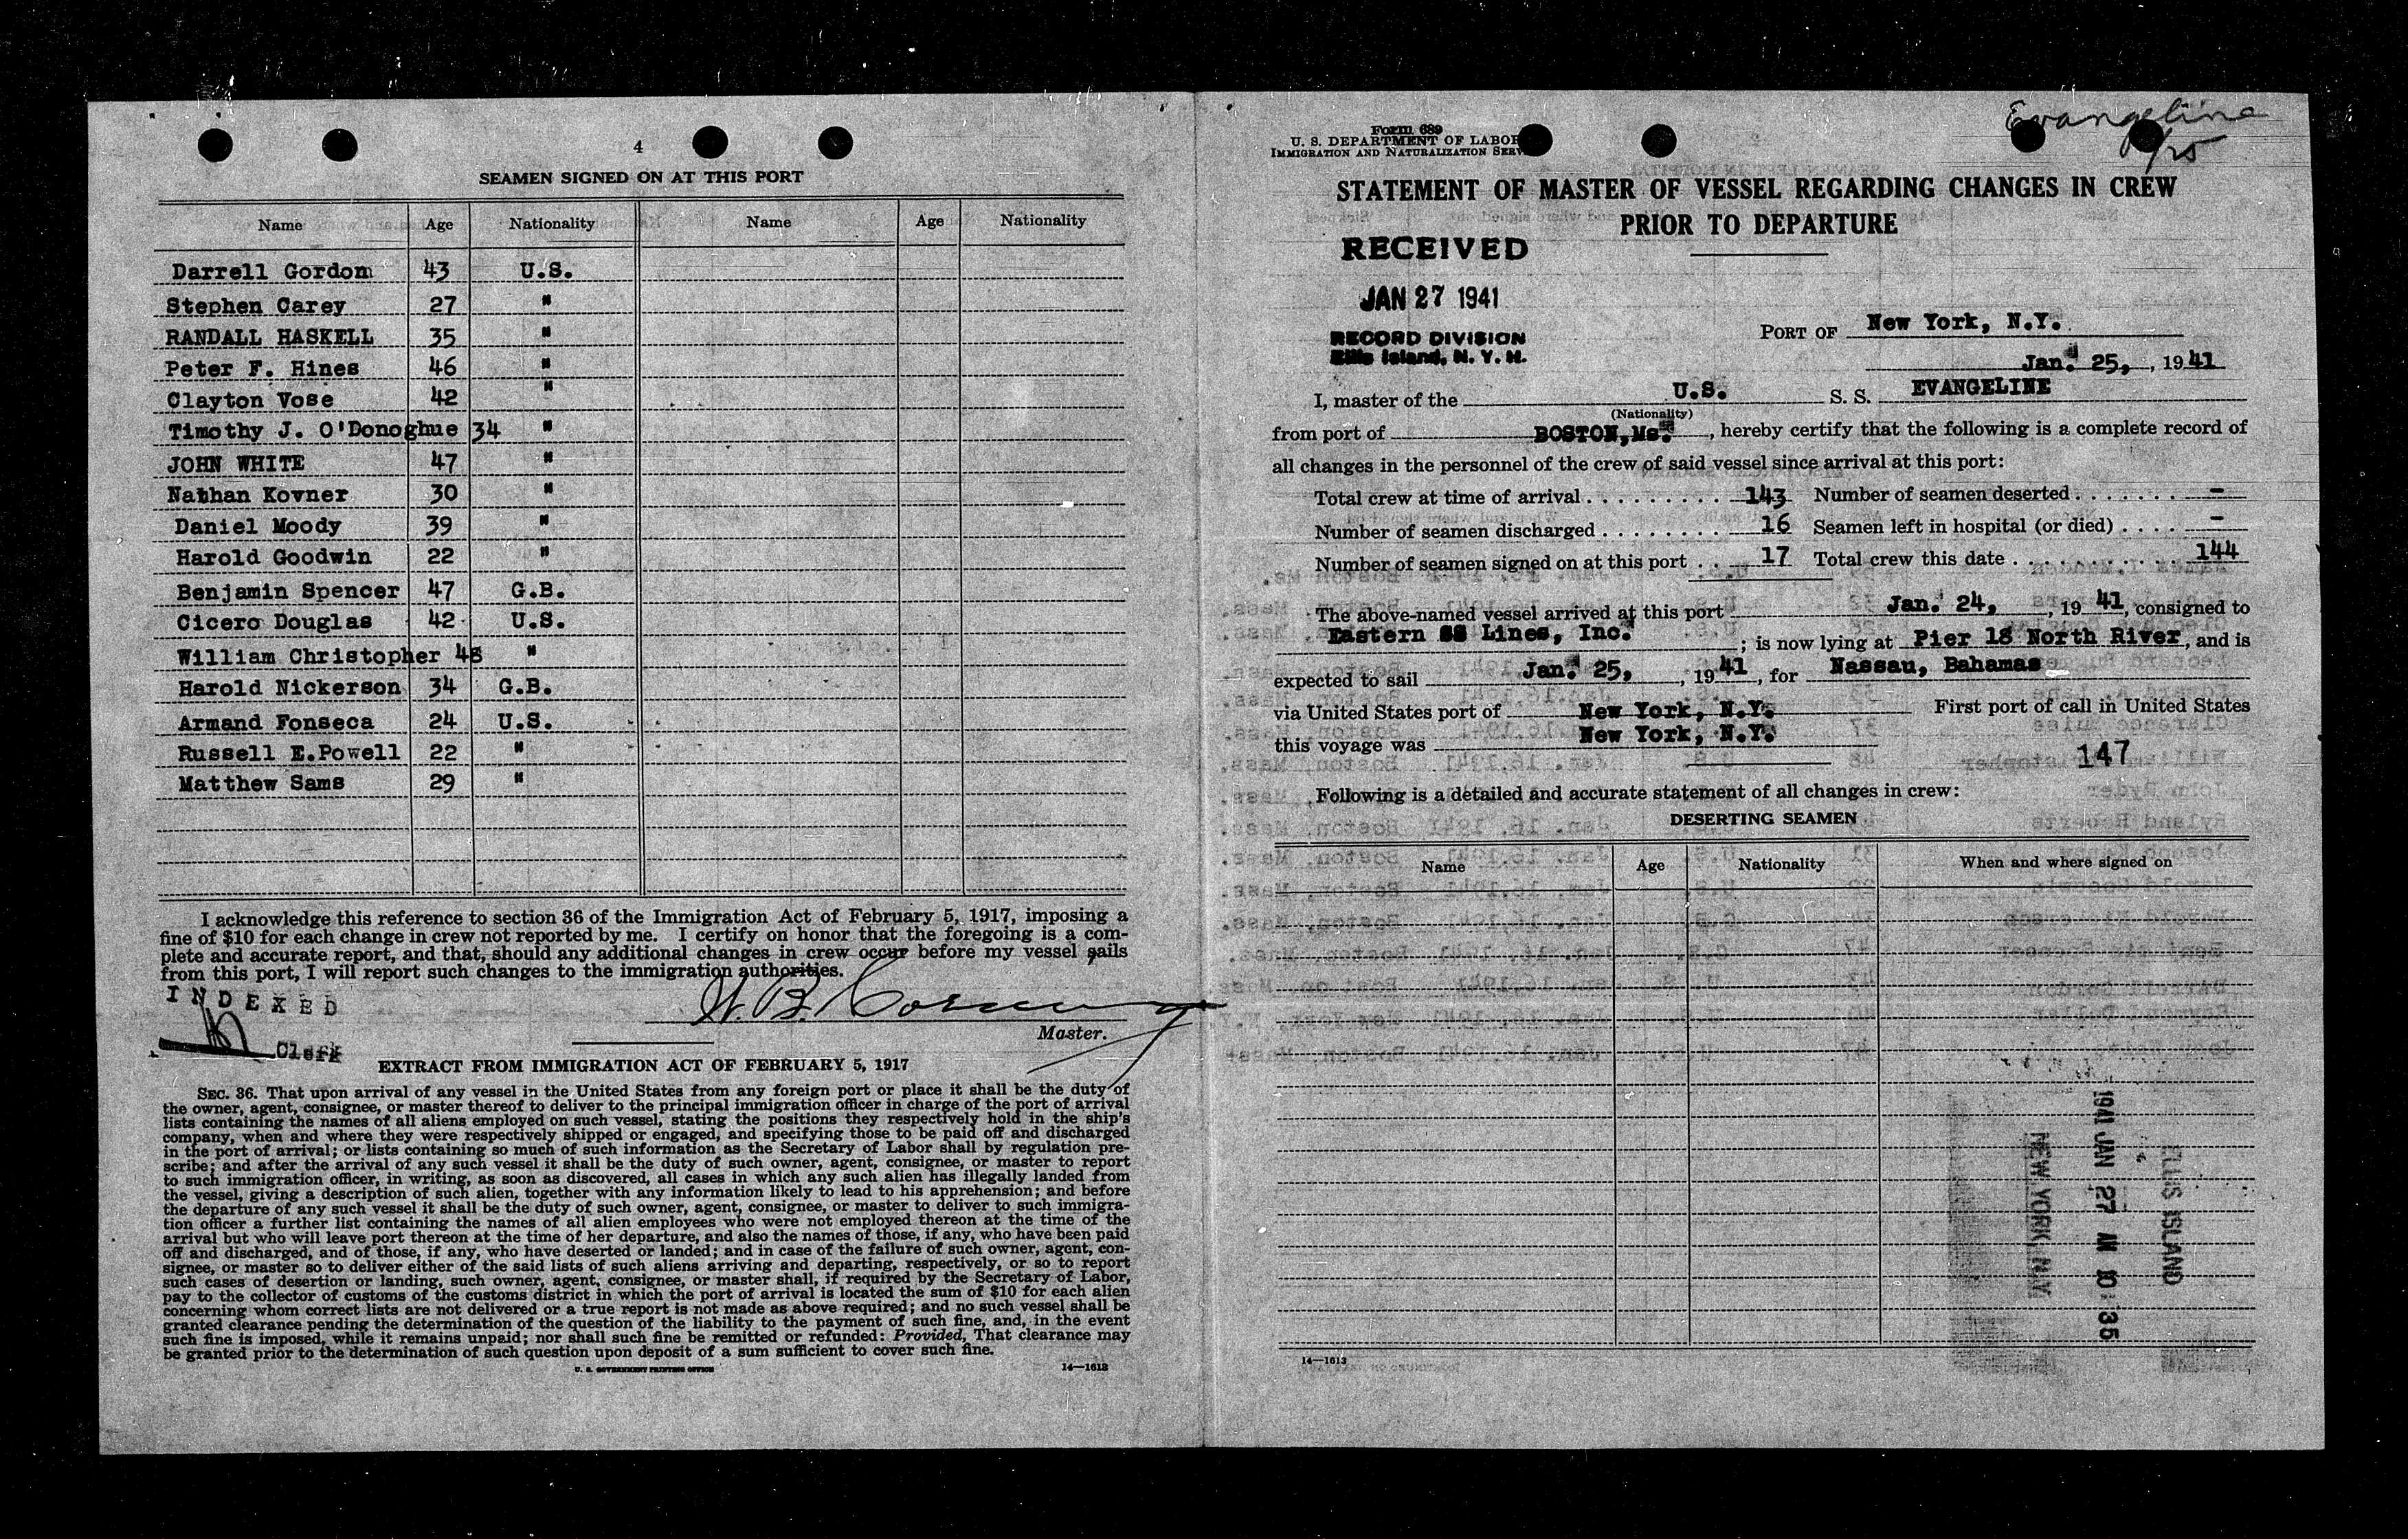 4
SEAMEN SIGNED ON AT THIS PORT
Name Age Nationality Name Age Nationality
Darrell Gordon 43 U.S.
Stephen Carey 27 "
RANDALL HASKELL 35 "
Peter F. Hines 46 "
Clayton Vose 42 "
Timothy J. O'Donoghue 34 "
JOHN WHITE 47 "
Nathan Kovner 30 "
Daniel Moody 39 "
Harold Goodwin 22 "
Benjamin Spencer 47 G.B.
Cicero Douglas 42 U.S.
William Christopher 48 "
Harold Nickerson 34 G.B.
Armand Fonseca 24 U.S.
Russell E.Powell 22 "
Matthew Sams 29 "
I acknowledge this reference to section 36 of the Immigration Act of February 5, 1917, imposing a
fine of $10 for each change in crew not reported by me. I certify on honor that the foregoing is a com-
plete and accurate report, and that, should any additional changes in crew occur before my vessel sails
from this port, I will report such changes to the immigration authorities.
INDEXED
W. B.
Master.
Clerk
EXTRACT FROM IMMIGRATION ACT OF FEBRUARY 5, 1917
SEC. 36. That upon arrival of any vessel in the United States from any foreign port or place it shall be the duty of
the owner, agent, consignee, or master thereof to deliver to the principal immigration officer in charge of the port of arrival
lists containing the names of all aliens employed on such vessel, stating the positions they respectively hold in the ship's
company, when and where they were respectively shipped or engaged, and specifying those to be paid off and discharged
in the port of arrival; or lists containing so much of such information as the Secretary of Labor shall by regulation pre-
scribe; and after the arrival of any such vessel it shall be the duty of such owner, agent, consignee, or master to report
to such immigration officer, in writing, as soon as discovered, all cases in which any such alien has illegally landed from
the vessel, giving a description of such alien, together with any information likely to lead to his apprehension; and before
the departure of any such vessel it shall be the duty of such owner, agent, consignee, or master to deliver to such immigra-
tion officer a further list containing the names of all alien employees who were not employed thereon at the time of the
arrival but who will leave port thereon at the time of her departure, and also the names of those, if any, who have been paid
off and discharged, and of those, if any, who have deserted or landed; and in case of the failure of such owner, agent, con-
signee, or master so to deliver either of the said lists of such aliens arriving and departing, respectively, or so to report
such cases of desertion or landing, such owner, agent, consignee, or master shall, if required by the Secretary of Labor,
pay to the collector of customs of the customs district in which the port of arrival is located the sum of $10 for each alien
concerning whom correct lists are not delivered or a true report is not made as above required; and no such vessel shall be
granted clearance pending the determination of the question of the liability to the payment of such fine, and, in the event
such fine is imposed, while it remains unpaid; nor shall such fine be remitted or refunded: Provided, That clearance may
be granted prior to the determination of such question upon deposit of a sum sufficient to cover such fine.
U. S. GOVERNMENT PRINTING OFFICE 14—1613
Evangeline
1/25
Form 689
U. S. DEPARTMENT OF LABOR
IMMIGRATION AND NATURALIZATION SERV
STATEMENT OF MASTER OF VESSEL REGARDING CHANGES IN CREW
PRIOR TO DEPARTURE
RECEIVED
JAN 27 1941
RECORD DIVISION
Ellis Island, N. Y. H.
PORT OF New York, N.Y.
Jan. 25, , 1941
I, master of the U.S. S. S. EVANGELINE
(Nationality)
from port of BOSTON,Ms. , hereby certify that the following is a complete record of
all changes in the personnel of the crew of said vessel since arrival at this port:
Total crew at time of arrival . . . . . . . . . 143 Number of seamen deserted . . . . . . . –
Number of seamen discharged . . . . . . . . 16 Seamen left in hospital (or died) . . . . –
Number of seamen signed on at this port . . 17 Total crew this date . . . . . . . . . . . 144
The above-named vessel arrived at this port Jan. 24, , 19 41, consigned to
Eastern SS Lines, Inc. ; is now lying at Pier 18 North River, and is
expected to sail Jan. 25, , 19 41, for Nassau, Bahamas
via United States port of New York, N.Y. First port of call in United States
this voyage was New York, N.Y.
147
Following is a detailed and accurate statement of all changes in crew:
DESERTING SEAMEN
Name Age Nationality When and where signed on
ELLIS ISLAND
1941 JAN 27 AM 10 35
NEW YORK, N.Y.
14—1613